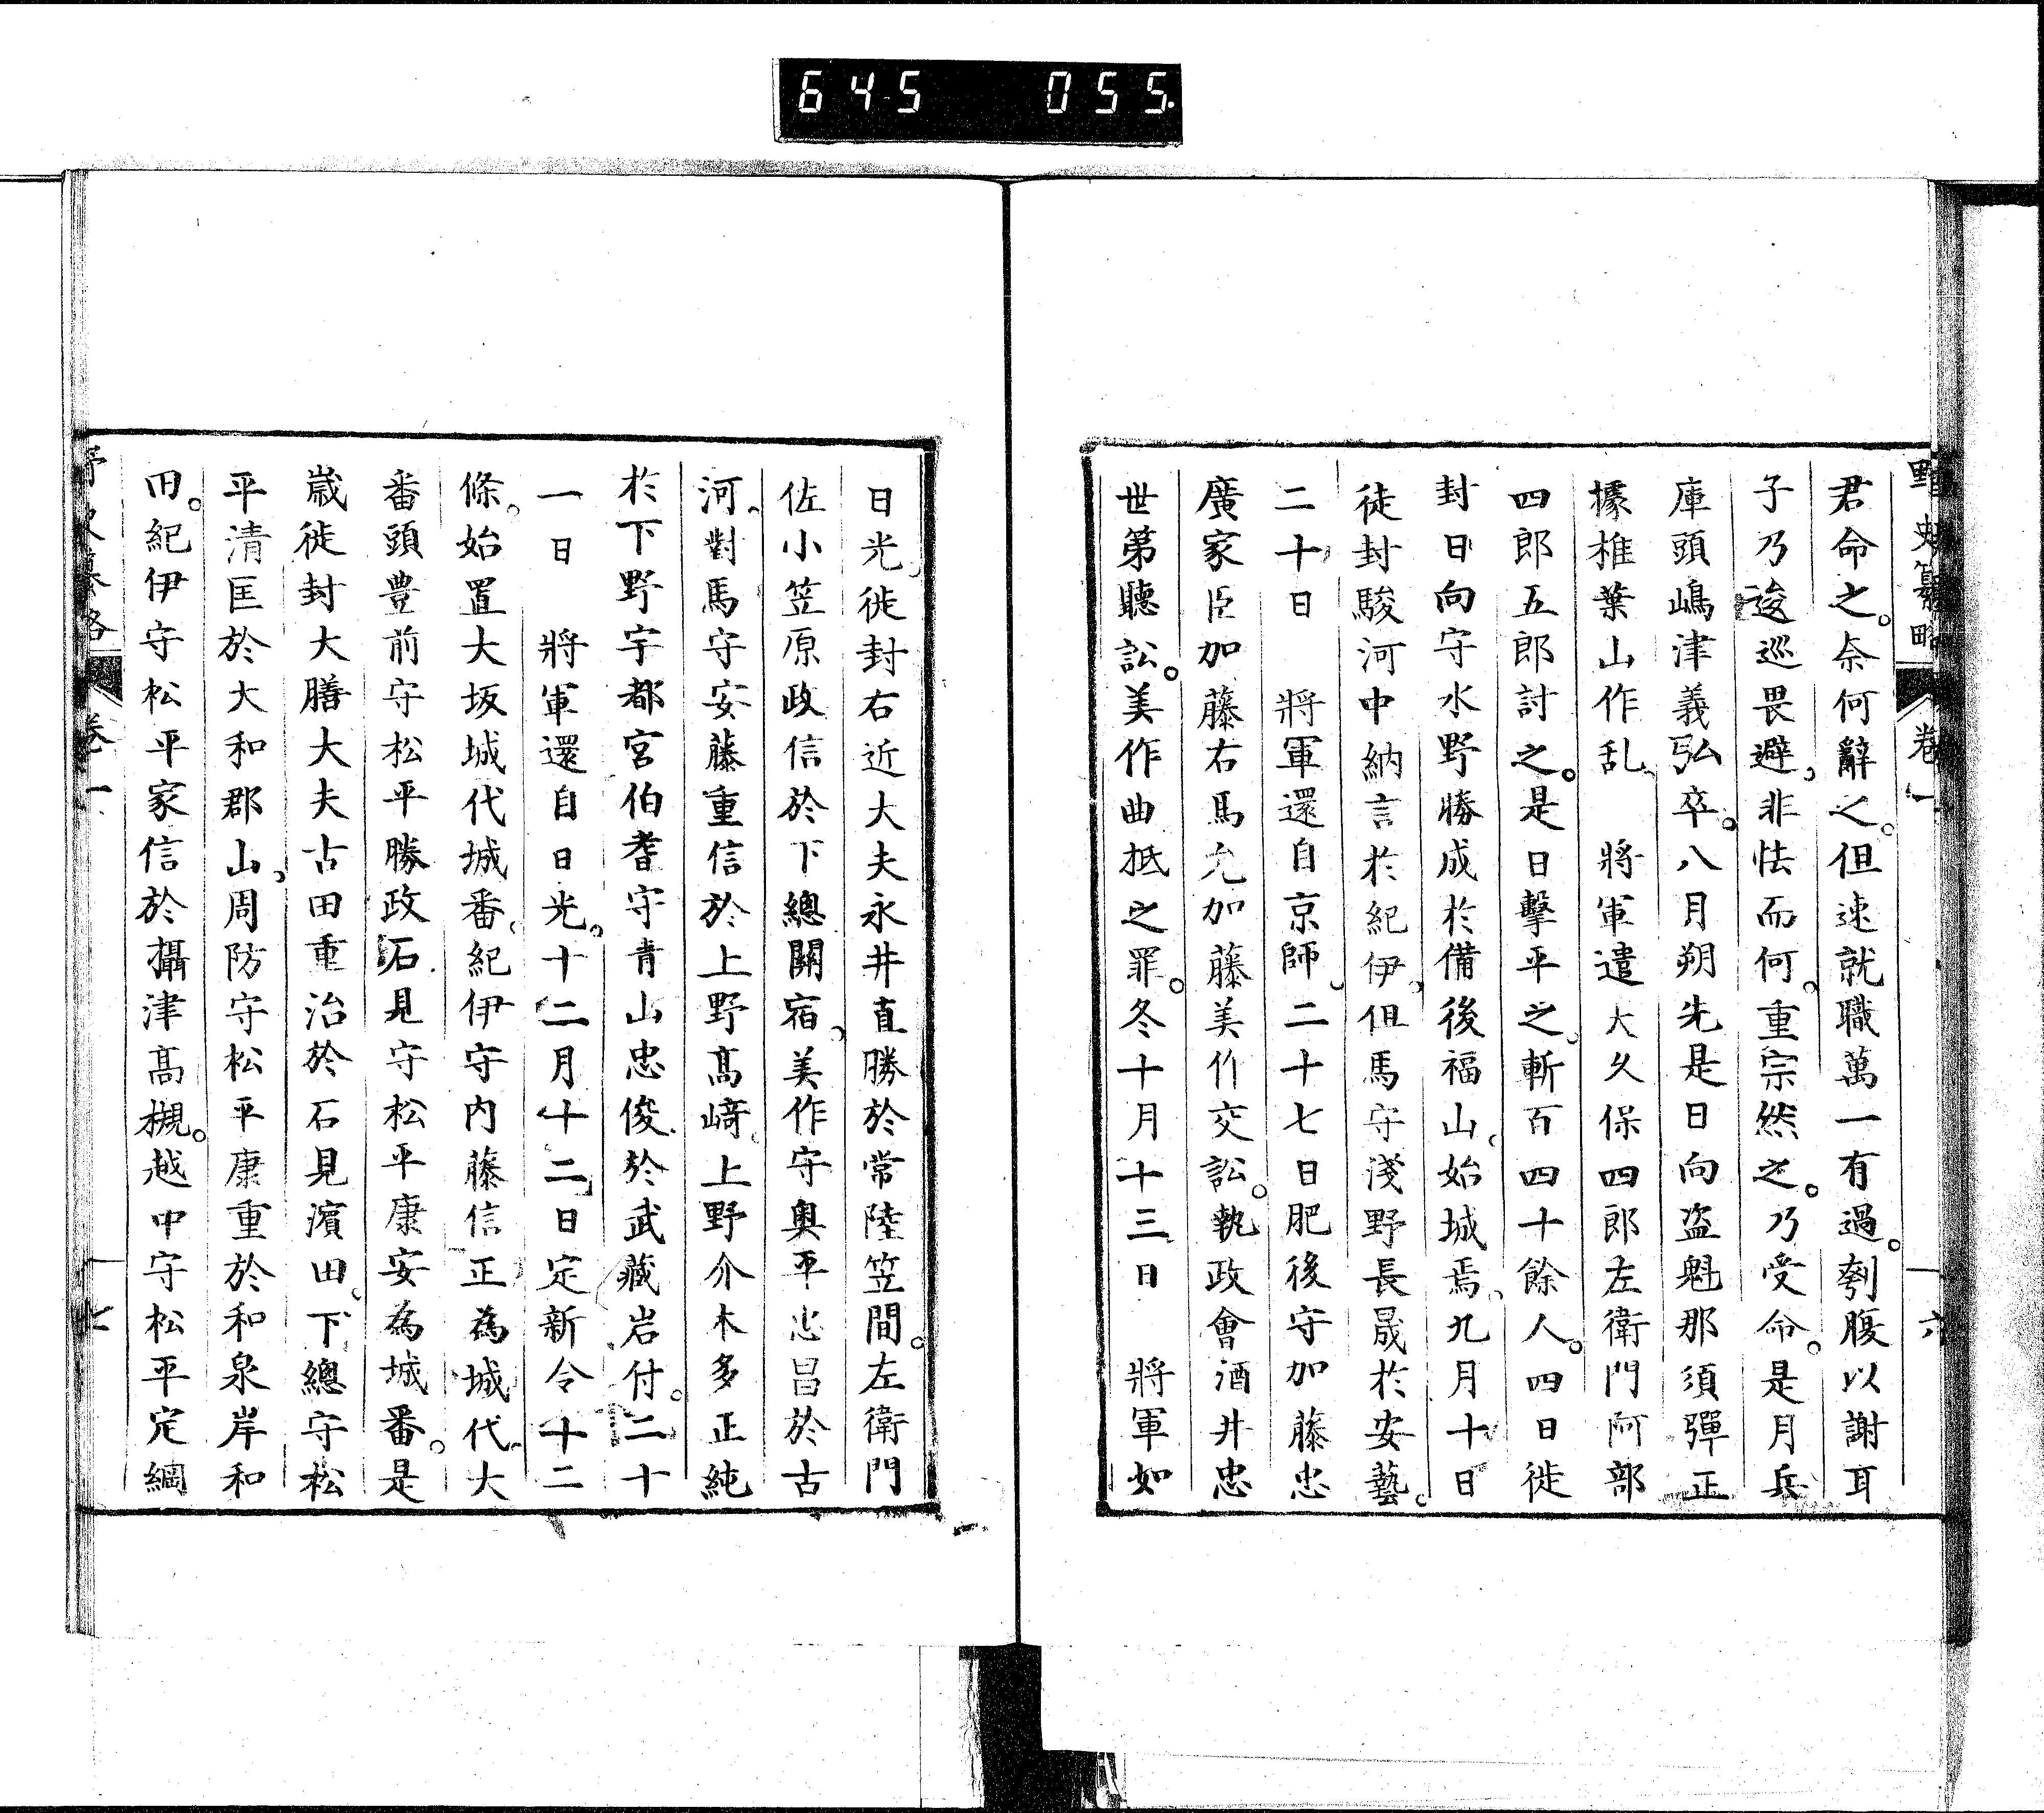 645 055
野史纂略 卷一 一六
君命之。奈何辭之。但速就職萬一有過。刳腹以謝耳
子乃逡巡畏避。非怯而何。重宗然之。乃受命。是月兵
庫頭嶋津義弘卒。八月朔先是日向盗魁那須彈正
據椎葉山作乱、 將軍遣大久保四郎左衛門阿部
四郎五郎討之。是日擊平之。斬百四十餘人。四日徙
封日向守水野勝成於備後福山。始城焉。九月十日
徙封駿河中納言於紀伊。但馬守淺野長晟於安藝。
二十日 將軍還自京師。二十七日肥後守加藤忠
廣家臣加藤右馬允加藤美作交訟。執政會酒井忠
世第聽訟。美作曲抵之罪。冬十月十三日 將軍如
日光。徙封右近大夫永井直勝於常陸笠間。左衛門
佐小笠原政信於下總關宿。美作守奥平忠昌於古
河。對馬守安藤重信於上野髙﨑。上野介本多正純
於下野宇都宮伯耆守青山忠俊於武藏岩付。二十
一日 將軍還自日光。十二月十二日定新令十二
條。始置大坂城代城番。紀伊守内藤信正為城代。大
番頭豊前守松平勝政石見守松平康安為城番。是
歳徙封大膳大夫古田重治於石見濱田。下總守松
平清匡於大和郡山。周防守松平康重於和泉岸和
田。紀伊守松平家信於攝津髙槻。越中守松平定綱
野史纂略 卷一 一七